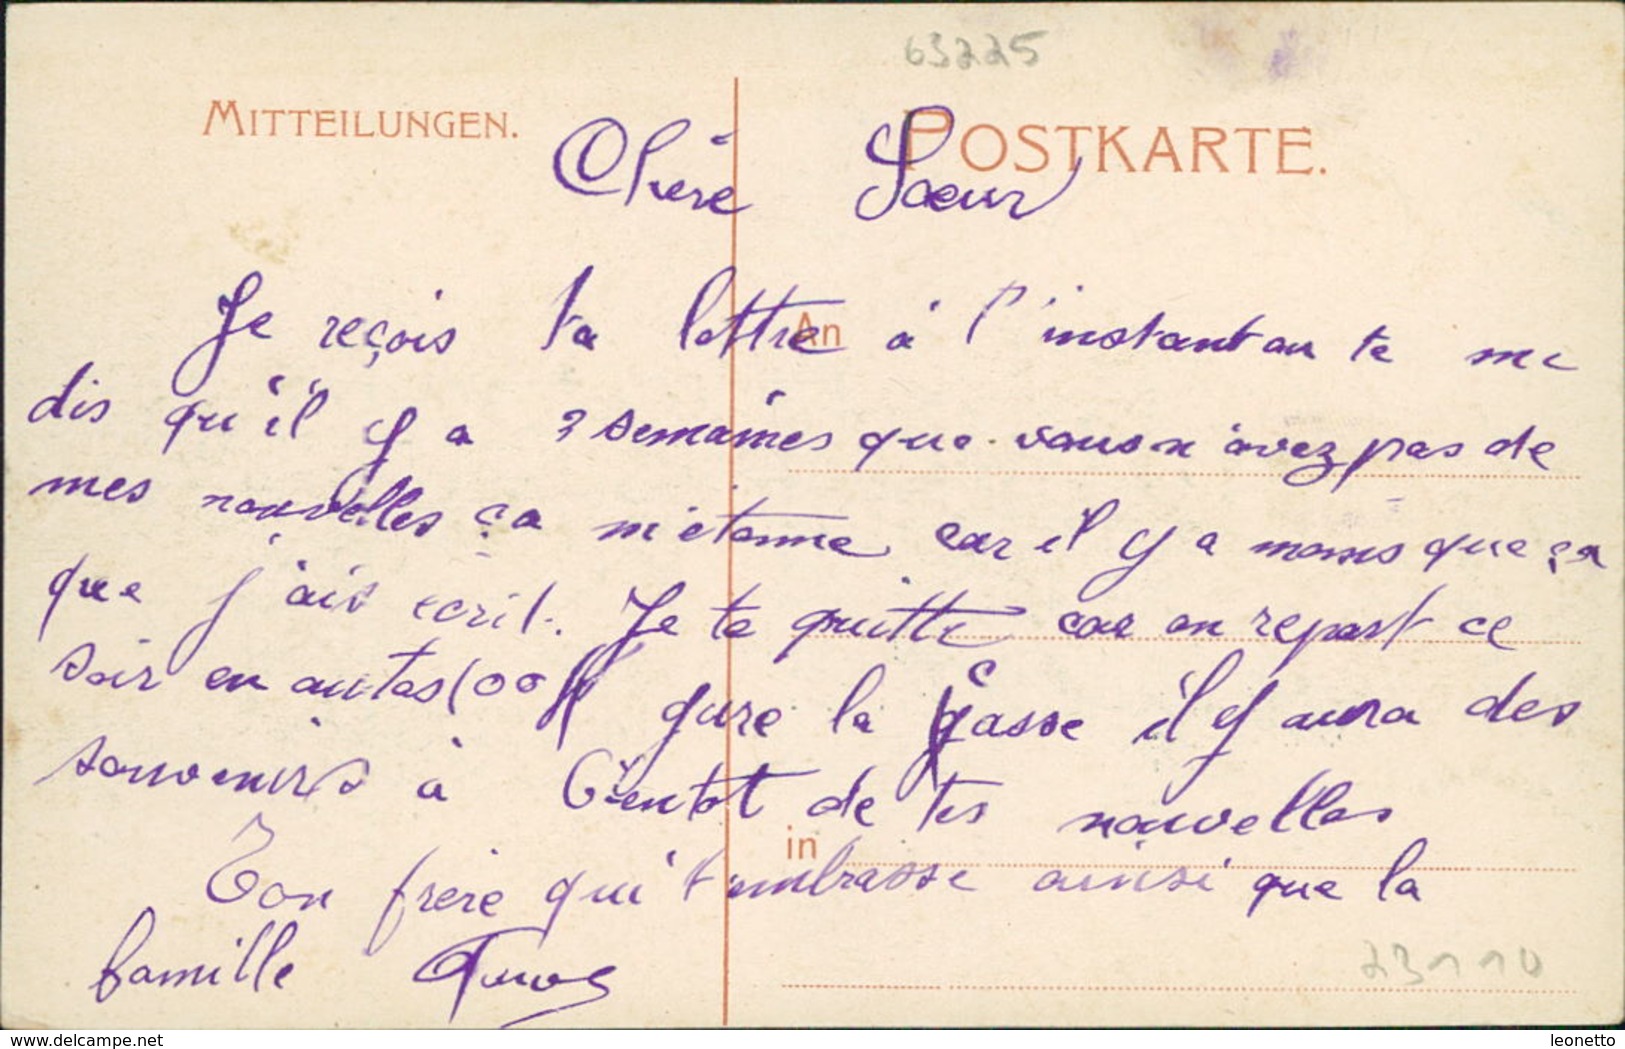 63225
MITTEILUNGEN.
POSTKARTE.
Chère Sœur
An
Je reçois ta lettre à l'instant ou tu me
dis qu'il y a 3 semaines que vous n'avez pas de
mes nouvelles ça m'étonne car il y a moins que ça
que j'ais ecrit. Je te quitte car on repart ce
soir en autos (00 gare la casse il y aura des
souvenirs à bientot de tes nouvelles
in
Ton frère qui t'embrasse ainsi que la
famille
23110
delcampe.net
leonetto